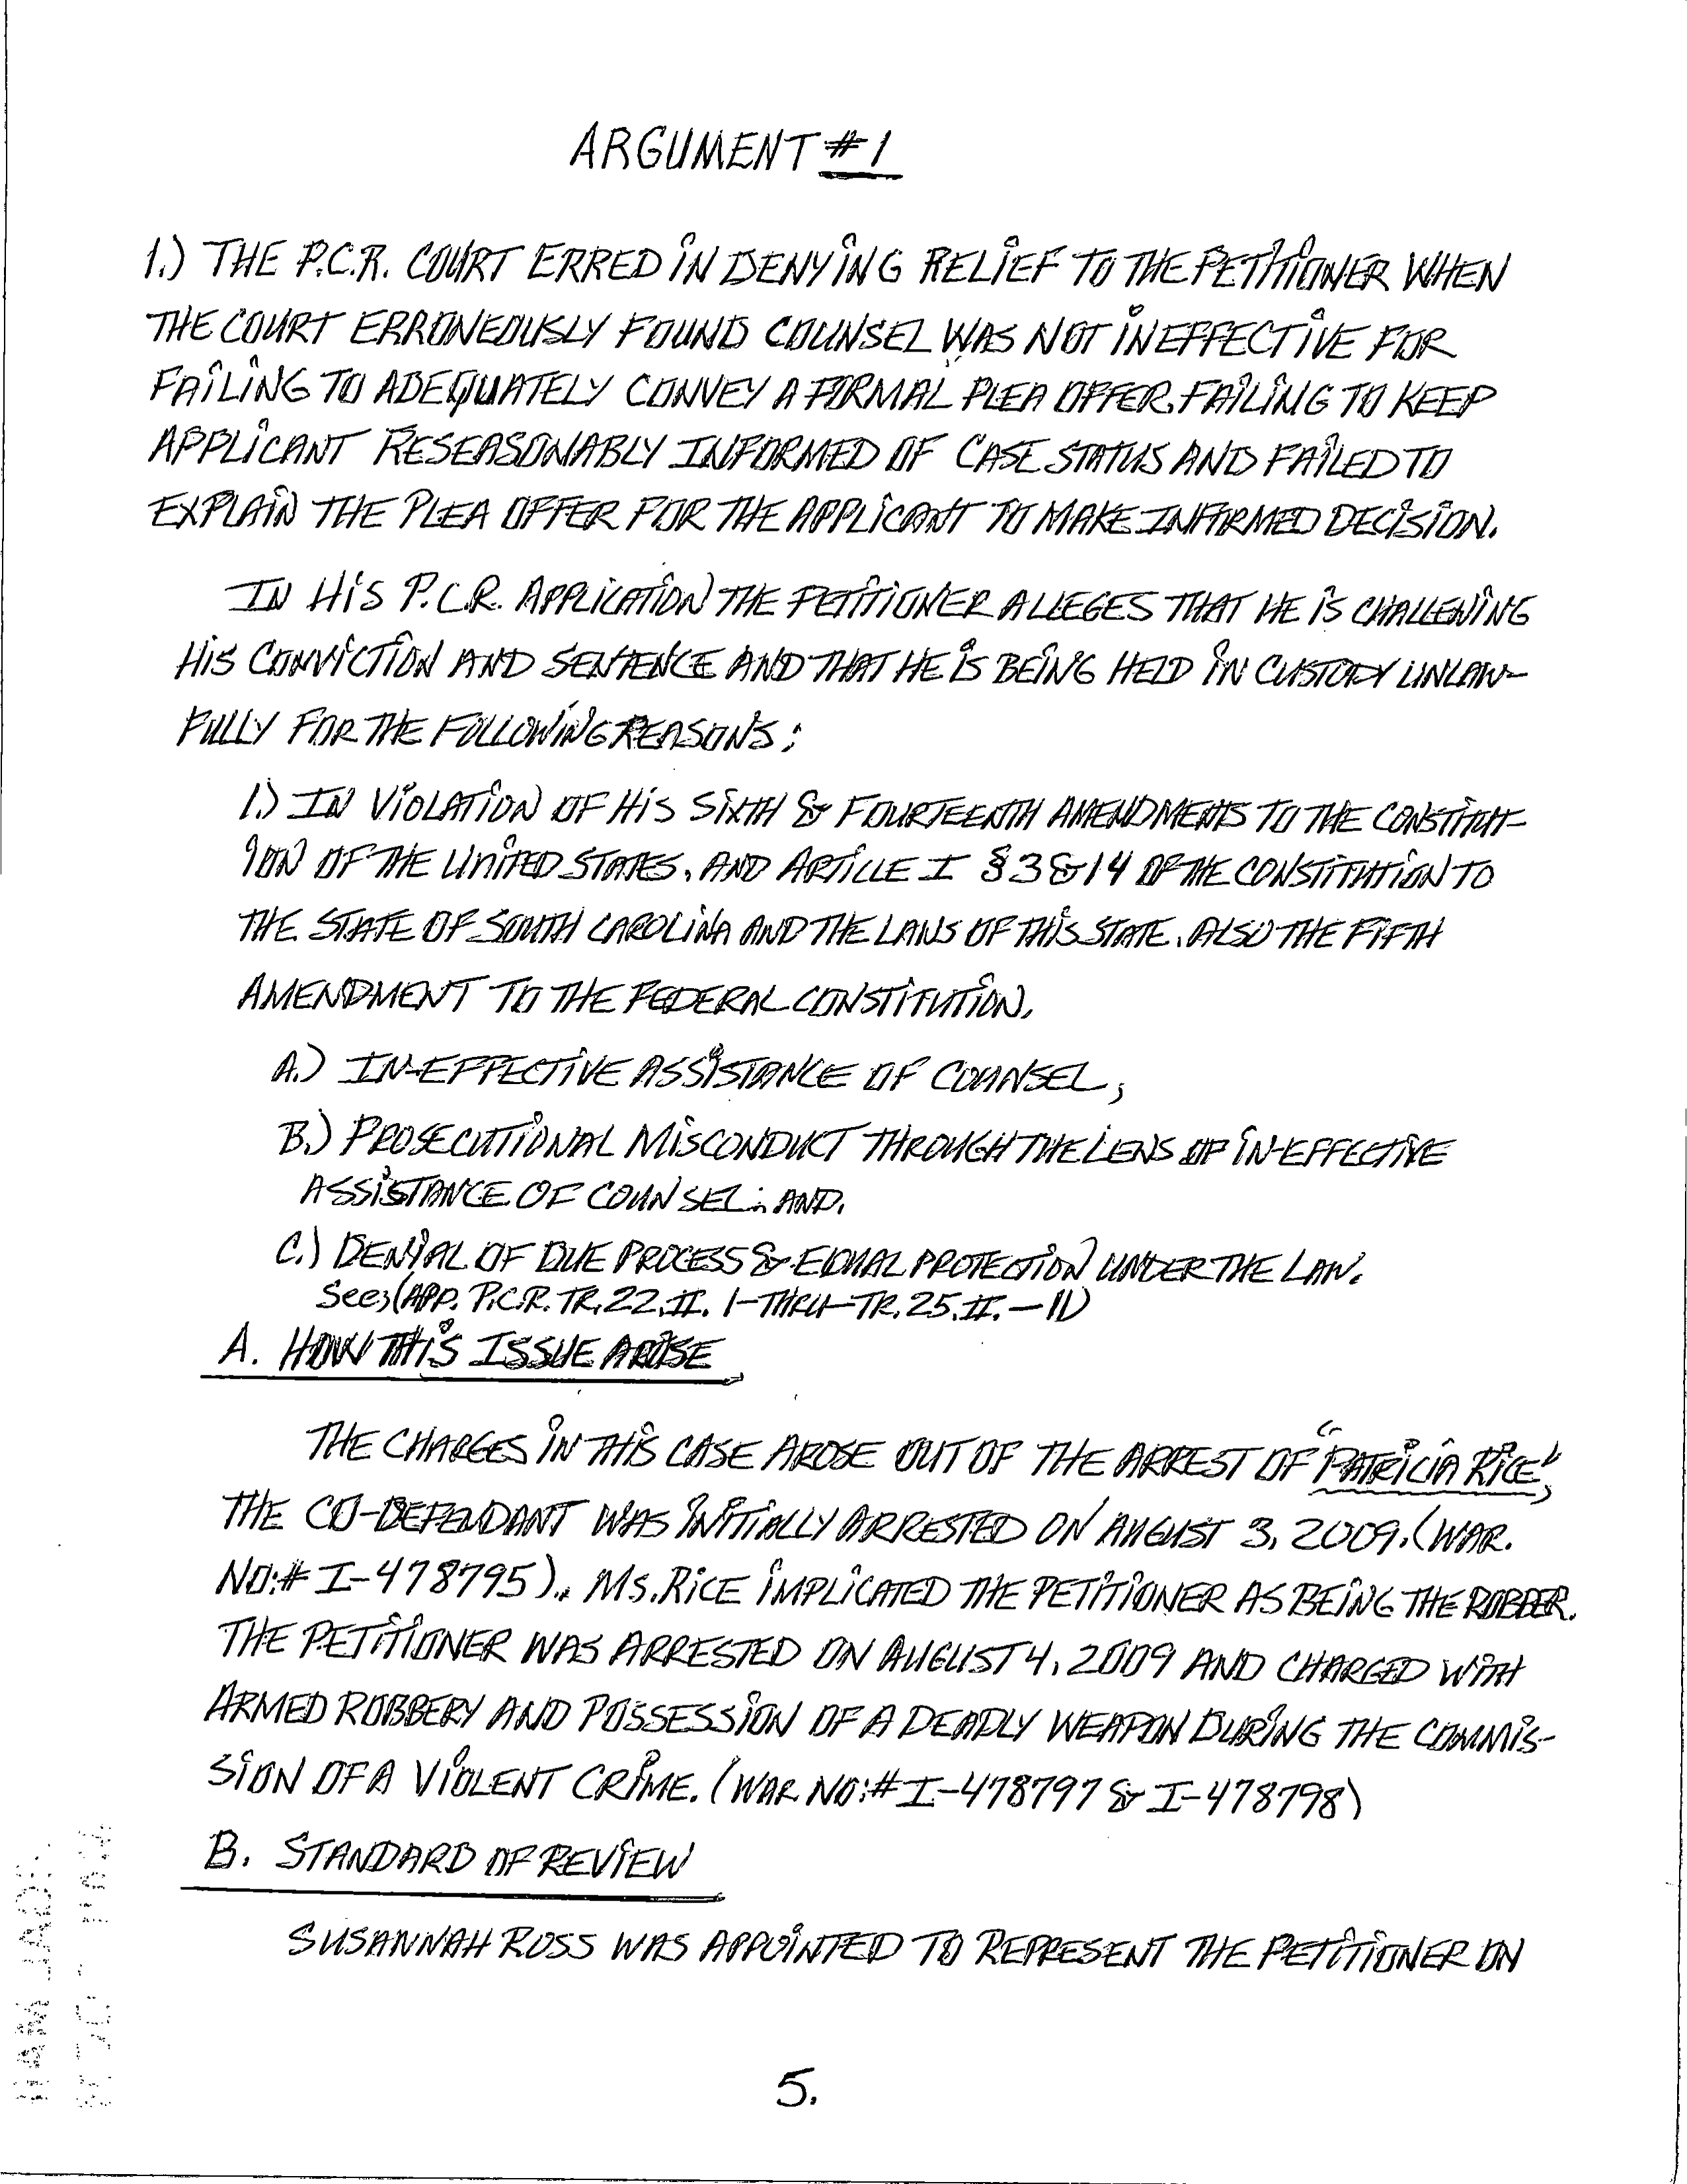 ARGUMENT #1
1.) THE P.C.R. COURT ERRED IN DENYING RELIEF TO THE PETITIONER WHEN
THE COURT ERRONEOUSLY FOUND COUNSEL WAS NOT INEFFECTIVE FOR
FAILING TO ADEQUATELY CONVEY A FORMAL PLEA OFFER, FAILING TO KEEP
APPLICANT RESEASONABLY INFORMED OF CASE STATUS AND FAILED TO
EXPLAIN THE PLEA OFFER FOR THE APPLICANT TO MAKE INFORMED DECISION.
IN HIS P.C.R. APPLICATION THE PETITIONER ALLEGES THAT HE IS CHALLENING
HIS CONVICTION AND SENTENCE AND THAT HE IS BEING HELD IN CUSTODY UNLAW-
FULLY FOR THE FOLLOWING REASONS:
1.) IN VIOLATION OF HIS SIXTH & FOURTEENTH AMENDMENTS TO THE CONSTITUT-
ION OF THE UNITED STATES, AND ARTICLE I § 3 & 14 OF THE CONSTITUTION TO
THE STATE OF SOUTH CAROLINA AND THE LAWS OF THIS STATE. ALSO THE FIFTH
AMENDMENT TO THE FEDERAL CONSTITUTION.
A.) IN-EFFECTIVE ASSISTANCE OF COUNSEL;
B.) PROSECUTIONAL MISCONDUCT THROUGH THE LENS OF IN-EFFECTIVE
ASSISTANCE OF COUNSEL; AND,
C.) DENIAL OF DUE PROCESS & EQUAL PROTECTION UNDER THE LAW.
See; (APP. P.C.R. TR. 22, II. 1-THRU-TR. 25, II. -11)
A. HOW THIS ISSUE AROSE
THE CHARGES IN THIS CASE AROSE OUT OF THE ARREST OF "PATRICIA RICE",
THE CO-DEFENDANT WAS INITIALLY ARRESTED ON AUGUST 3, 2009. (WAR.
NO:# I-478795). MS. RICE IMPLICATED THE PETITIONER AS BEING THE ROBBER.
THE PETITIONER WAS ARRESTED ON AUGUST 4, 2009 AND CHARGED WITH
ARMED ROBBERY AND POSSESSION OF A DEADLY WEAPON DURING THE COMMIS-
SION OF A VIOLENT CRIME. (WAR NO:# I-478797 & I-478798)
B. STANDARD OF REVIEW
SUSANNAH ROSS WAS APPOINTED TO REPRESENT THE PETITIONER ON
5.